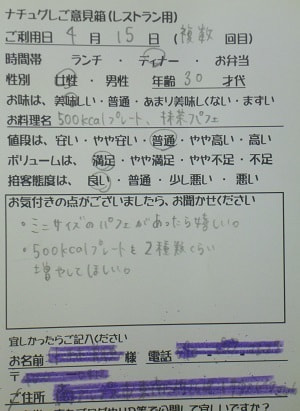 ナチュグしご意見箱(レストラン用)
ご利用日 4 月 15 日 (複数 回目)
時間帯 ランチ ・ ディナー ・ お弁当
性別 女性 ・ 男性 年齢 30 才代
お味は、美味しい・普通・あまり美味しくない・まずい
お料理名 500kcalプレート、抹茶パフェ
値段は、安い・やや安い・普通・やや高い・高い
ボリュームは、満足・やや満足・やや不足・不足
接客態度は、良い・普通・少し悪い・悪い
お気付きの点がございましたら、お聞かせください
・ミニサイズのパフェがあったら嬉しい。
・500kcalプレートを2種類くらい
増やしてほしい。
宜しかったらご記入ください
お名前 様 電話
〒
ご住所